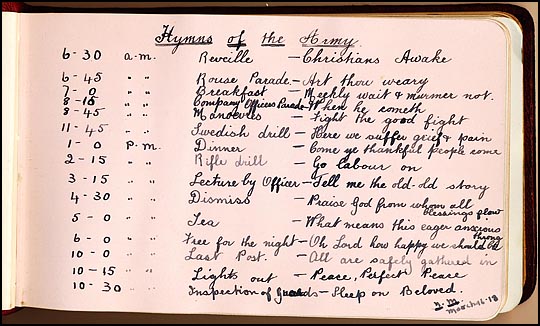 Hymns of the Army.
6-30 a.m. Reveille - Christians Awake
6-45 " " Rouse Parade - Art thou weary
7-0 " " Breakfast - Meekly wait & murmer not.
8-15 " " Company Officers Parade - When he cometh
8-45 " " Manoevers - Fight the good fight
11-45 " " Swedish drill - Here we suffer grief & pain
1-0 P.m. Dinner - Come ye thankful people come
2-15 " " Rifle drill - Go labour on
3-15 " " Lecture by Officer - Tell me the old-old story
4-30 " " Dismiss - Praise God from whom all
blessings flow.
5-0 " " Tea - What means this eager anxious
throng
6-0 " " Free for the night - Oh Lord how happy we should be
10-0 " " Last Post. - All are safely gathered in
10-15 " " Lights out - Peace, Perfect Peace
10-30 " " Inspection of guards - Sleep on Beloved.
March 16-18